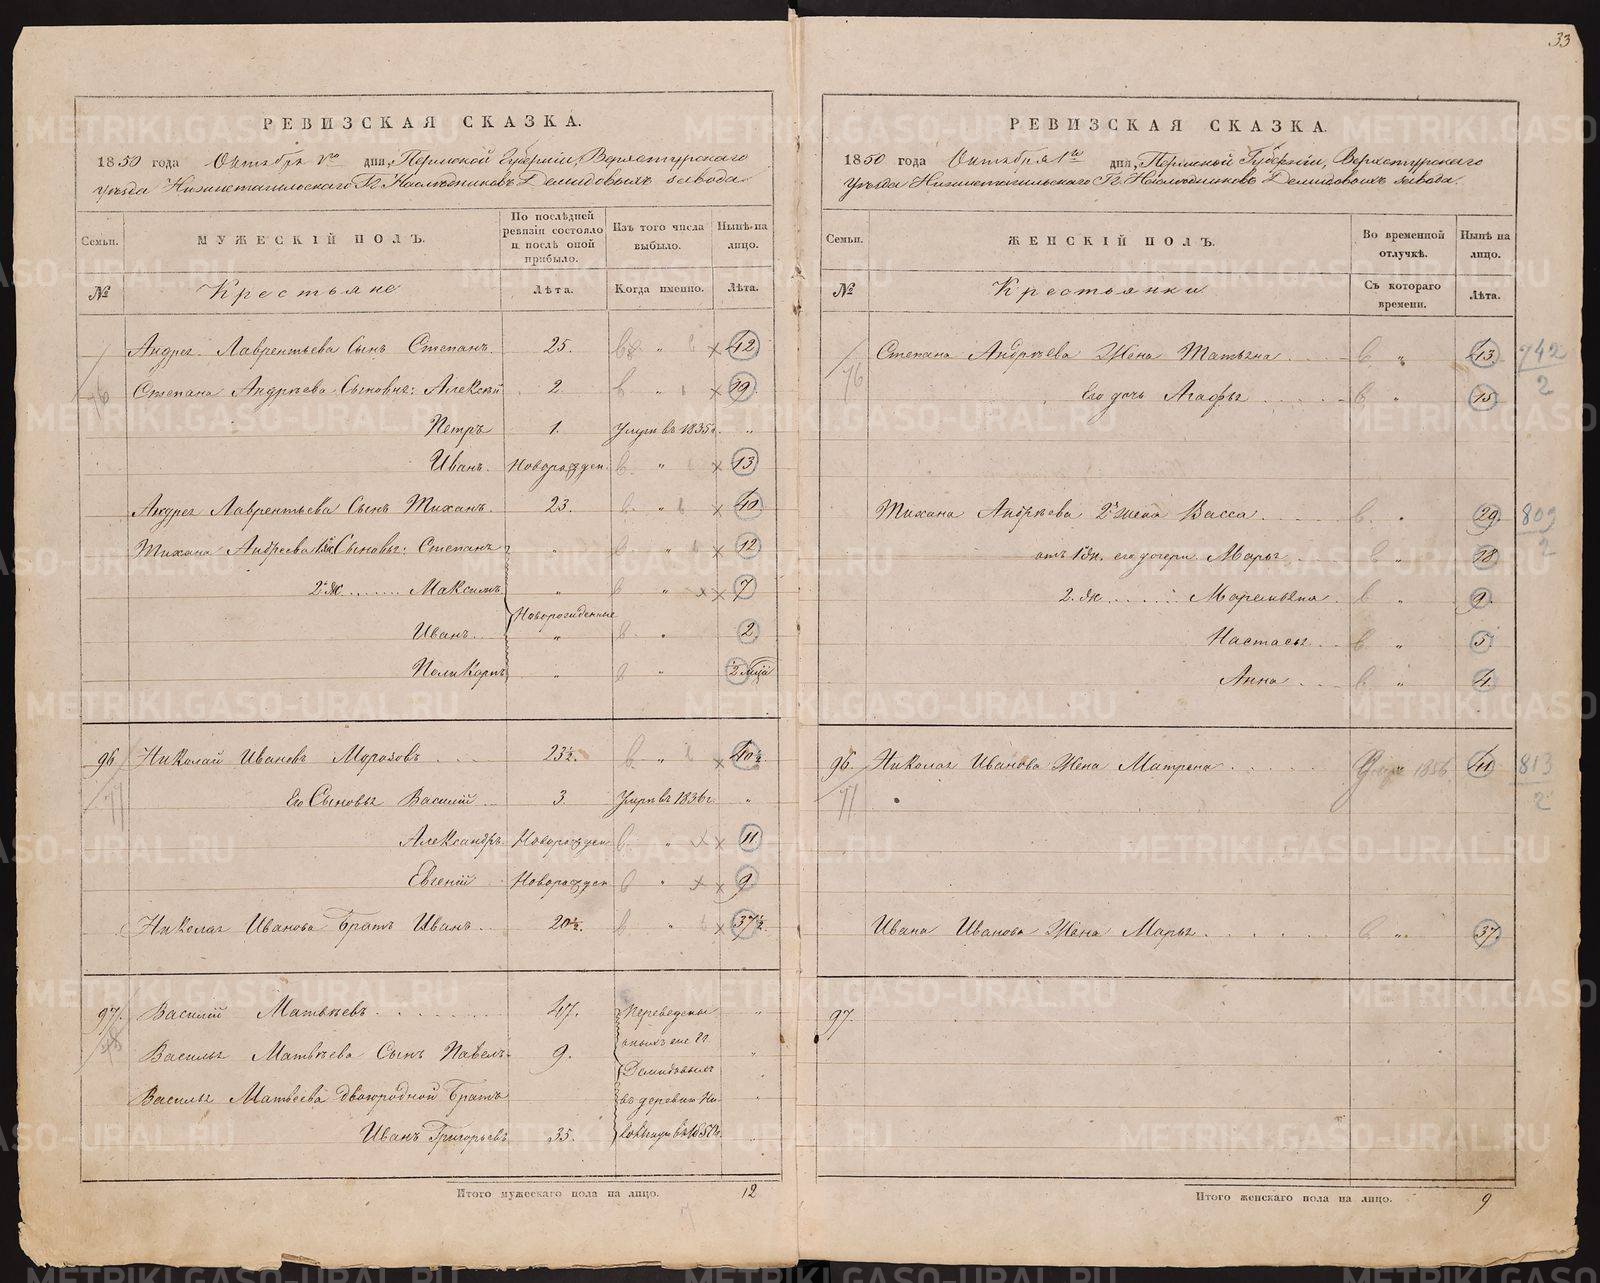 33
РЕВИЗСКАЯ СКАЗКА.
1850 года Октября 1го дня, Пермской Губернии, Верхотурскаго
Уезда Нижнетагильскаго Гг. Наследниковъ Демидовыхъ завода
Семьи. МУЖЕСКІЙ ПОЛЪ. По послѣдней ревизіи состояло и послѣ оной прибыло. Изъ того числа выбыло. Нынѣ на лицо.
№ Крестьяне Лѣта. Когда именно. Лѣта.
Андрея Лаврентьева Сынъ Степанъ. 25. " 42
76 Степана Андрѣева Сыновья: Алексѣй 2 " 19
Петръ 1. Умре въ 1835г. "
Иванъ. Новорожден. " 13
Андрея Лаврентьева Сынъ Тиханъ. 23 " 40
Тихана Андреева 1й ж Сыновья: Степанъ " " 12
2й ж........ Максимъ " " 7
Новорожденные
Иванъ. " " 2
Поликарпъ " " 2 мца
96. Николай Ивановъ Морозовъ 23½. " 40½
77 Его Сыновья Василій 3 Умре въ 1836г. "
Александръ Новорожден " 11
Евгеній Новорожден " 9
Николая Иванова Братъ Иванъ 20½. " 37½
97. Василій Матвѣевъ 47. Переведены "
Василья Матвѣева Сынъ Павелъ 9. Гг. "
Демидовыми
Василья Матвеева двоюродной Братъ въ деревню "
Иванъ Григорьевъ 35. "
Итого мужескаго пола на лицо. 12
РЕВИЗСКАЯ СКАЗКА.
1850 года Октября 1го дня, Пермской Губерніи, Верхотурскаго
Уѣзда Нижнетагильскаго Гг. Наслѣдниковъ Демидовыхъ завода.
Семьи. ЖЕНСКІЙ ПОЛЪ. Во временной отлучкѣ. Нынѣ на лицо.
№ Крестьянки Съ котораго времени. Лѣта.
Степана Андрѣева Жена Татьяна " 43 742
76 Его дочь Агафья " 15 2
Тихана Андрѣева 2я жена Васса " 29 809
отъ 1й ж. его дочери Марья " 18 2
2. ж. Маремьяна " 9
Настасья " 5
Анна " 4
96. Николая Иванова Жена Матрена 1856 41 813
77 2
Ивана Иванова Жена Марья " 37
97.
Итого женскаго пола на лицо. 9
METRIKI.GASO-URAL.RU